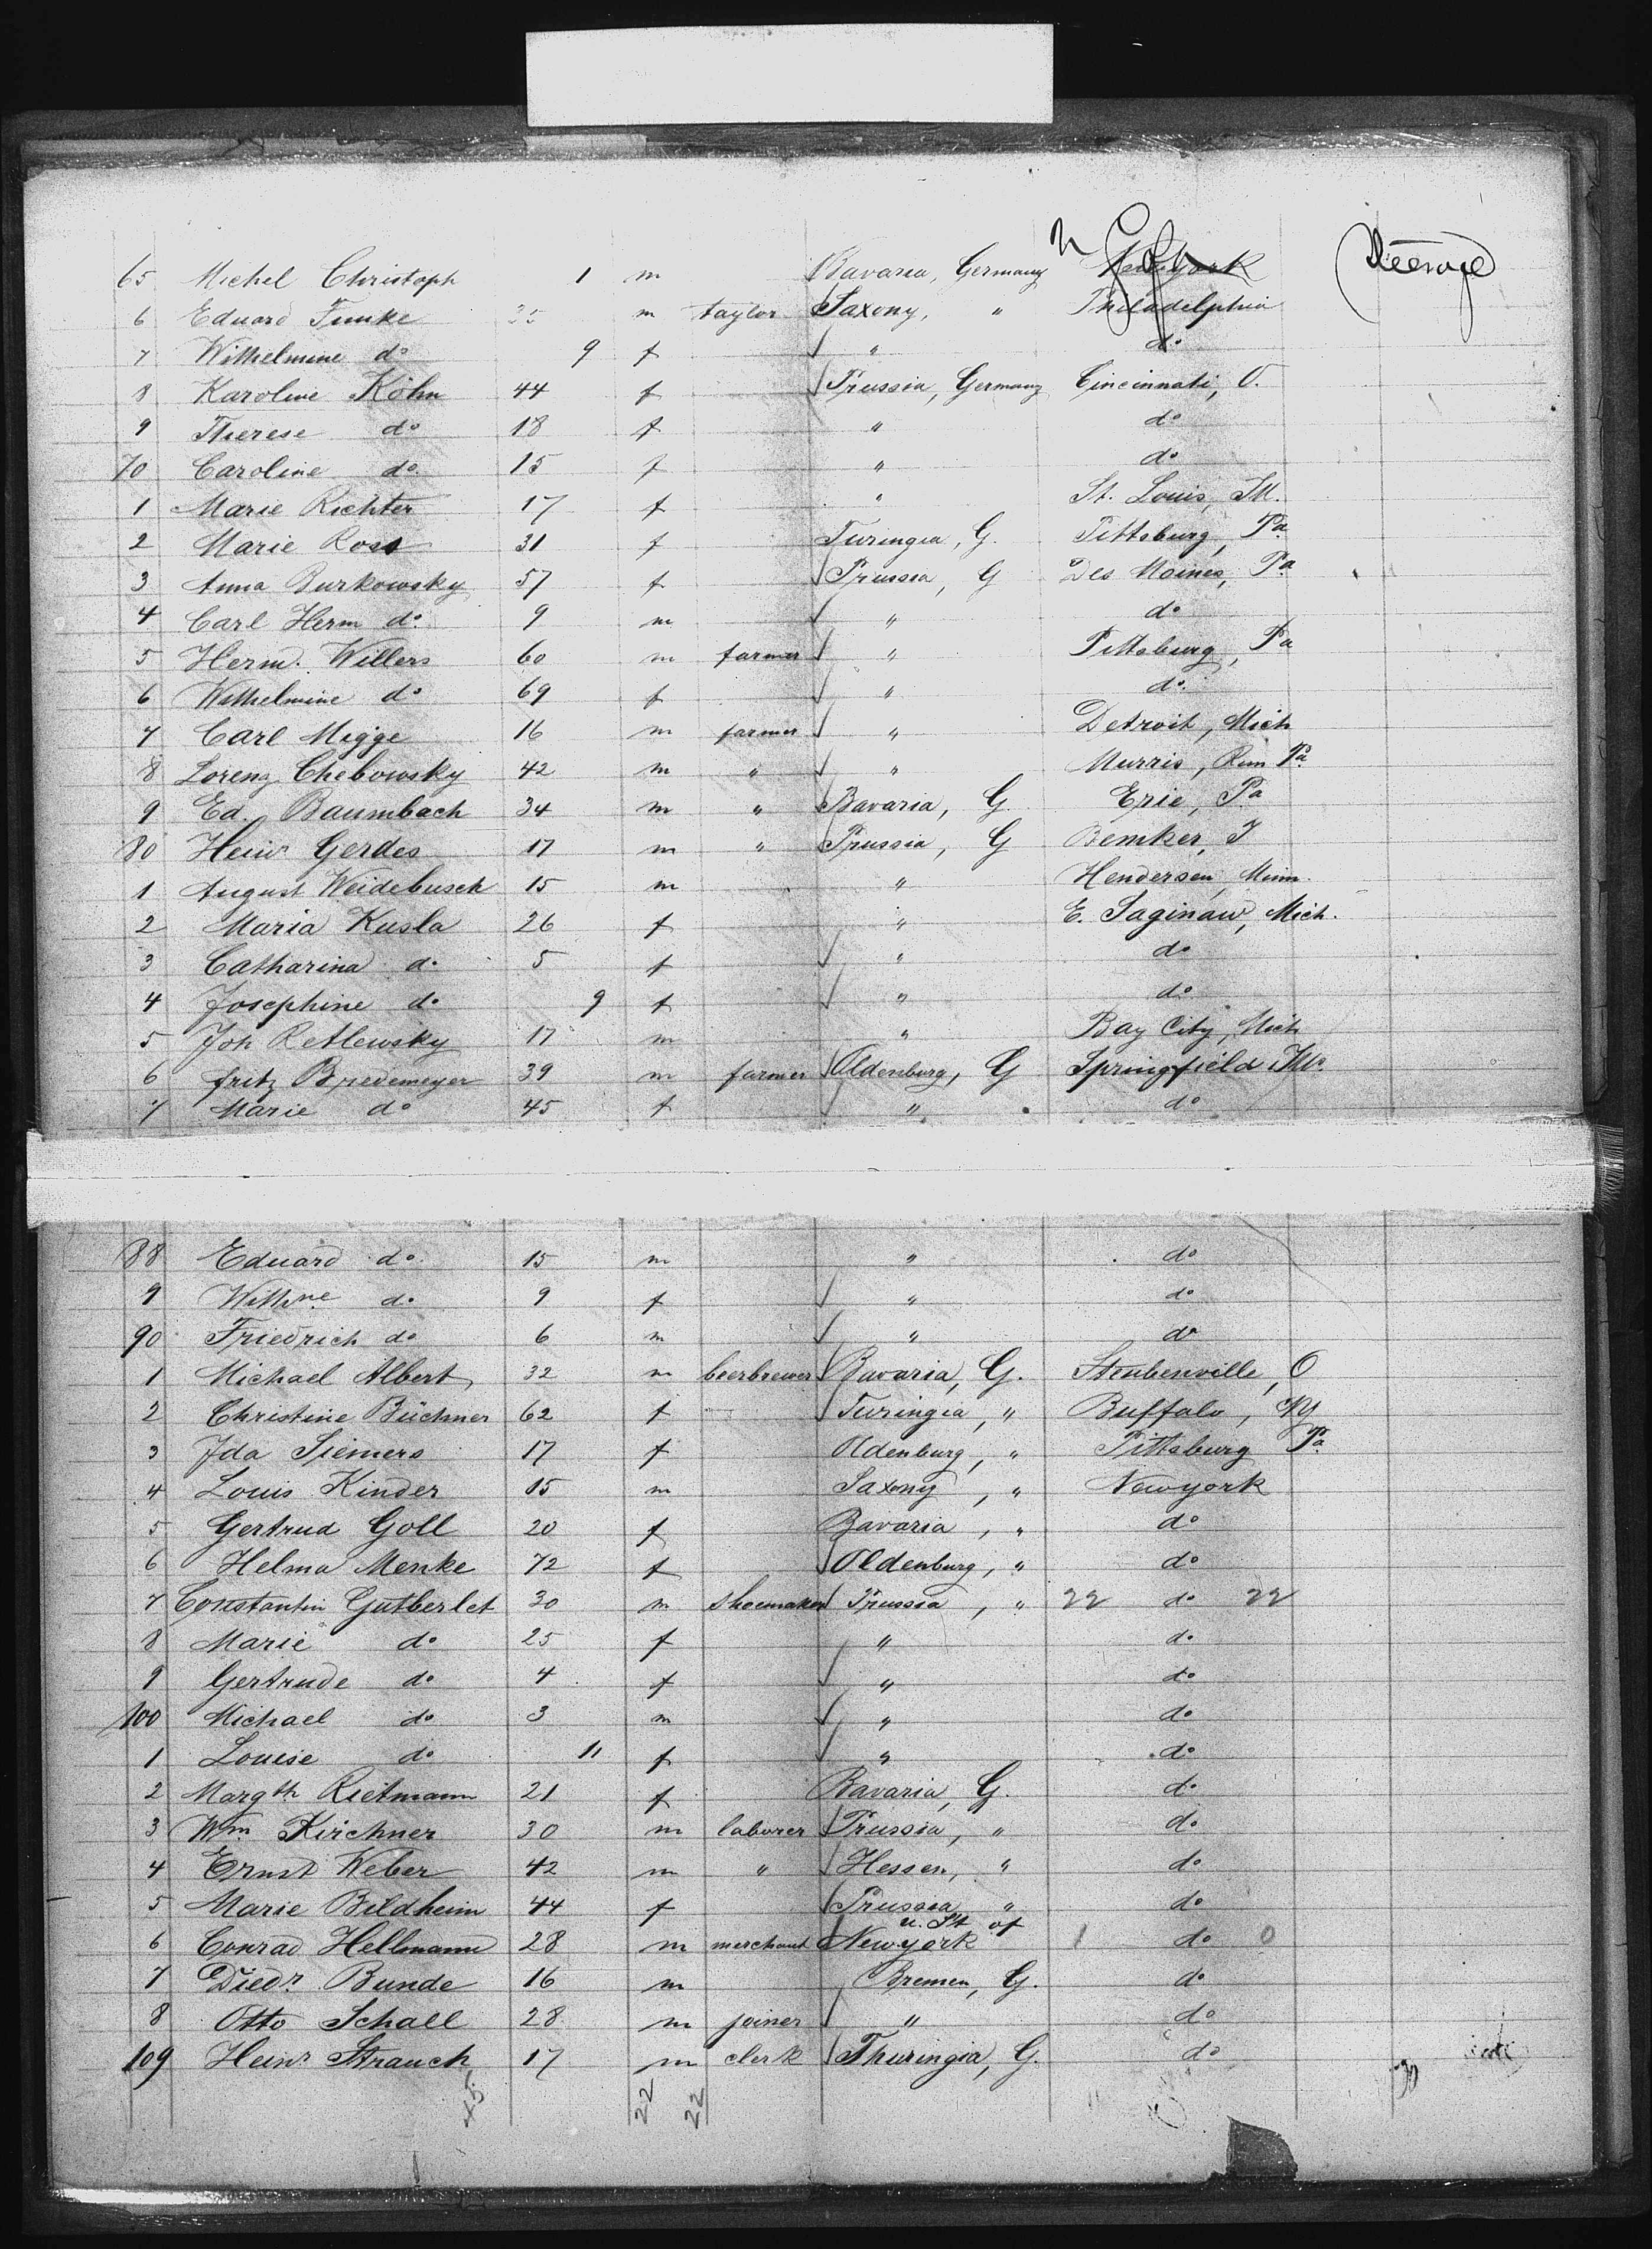 65 Michel Christoph 1 m Bavaria, Germany Newyork Steerage
6 Eduard Funke 35 m taylor Saxony, " Philadelphia
7 Wilhelmine do 9 f " do
8 Karoline Köhn 44 f Prussia, Germany Cincinnati, O.
9 Therese do 18 f " do
70 Caroline do. 15 f " do
1 Marie Richter 17 f " St. Louis, M.
2 Marie Ross 31 f Turingia, G. Pittsburg, Pa
3 Anna Burkowsky 57 f Prussia, G Des Moines, Pa
4 Carl Herm do. 9 m " do
5 Herm. Willers 60 m farmer " Pittsburg, Pa
6 Wilhelmine do 69 f " do.
7 Carl Migge 16 m farmer " Detroit, Mich
8 Lorenz Chebowsky 42 m " " Murris, Run Pa
9 Ed. Baumbach 34 m " Bavaria, G. Erie, Pa
80 Heinr Gerdes 17 m " Prussia, G Bemker, I
1 August Weidebusch 15 m " Hendersen, Minn.
2 Maria Kusla 26 f " E. Saginaw, Mich.
3 Catharina do 5 f " do
4 Josephine do 9 f " do
5 Joh Retlewsky 17 m " Bay City, Mich
6 Fritz Bredemeyer 39 m farmer Oldenburg, G Springfield
7 Marie do 45 f " do
88 Eduard do. 15 m " do
9 Wilhne do 9 f " do
90 Friedrich do 6 m " do
1 Michael Albert 32 m beerbrewer Bavaria, G. Steubenville, O
2 Christine Büchner 62 f Turingia, " Buffalo, NY
3 Ida Siemers 17 f Oldenburg, " Pittsburg Pa
4 Louis Kinder 15 m Saxony, " Newyork
5 Gertrud Goll 20 f Bavaria, " do
6 Helma Menke 72 f Oldenburg, " do
7 Constantin Gutberlet 30 m shoemaker Prussia, " 22 do 22
8 Marie do 25 f " do
9 Gertrude do 4 f " do
100 Michael do 3 m " do
1 Louise do 11 f " do
2 Margth Rietmann 21 f Bavaria, G. do
3 Wm Kirchner 30 m laborer Prussia, " do
4 Ernst Weber 42 m " Hessen, " do
5 Marie Bildheim 44 f Prussia " do
u. St of
6 Conrad Hellmann 28 m merchant Newyork 1 do 0
7 Diedr. Bunde 16 m Bremen, G. do
8 Otto Schall 28 m joiner " do
109 Heinr Strauch 17 m clerk Thuringia, G. do
45 22 22